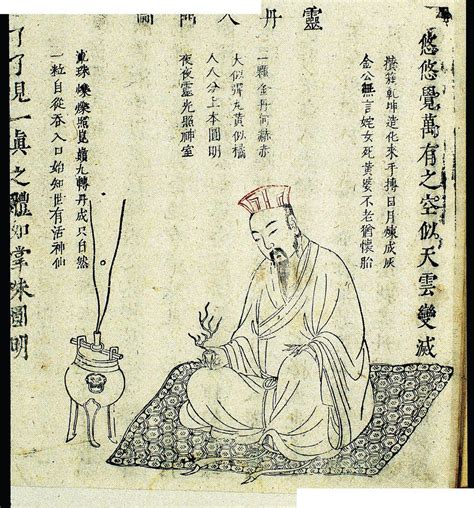 靈丹入
悠悠覺萬有之空似天雲變滅
攢簇乾坤造化來手摶日月煉成灰
金公無言姹女死黃婆不老猶懷胎
一顆金丹何赫赤
大似彈丸黃似橘
人人分上本圓明
夜夜靈光照神室
珠爍爍照崑巔九轉丹成只自然
一粒自從吞入口始知世有活神仙
了了見一眞之體如掌珠圓明